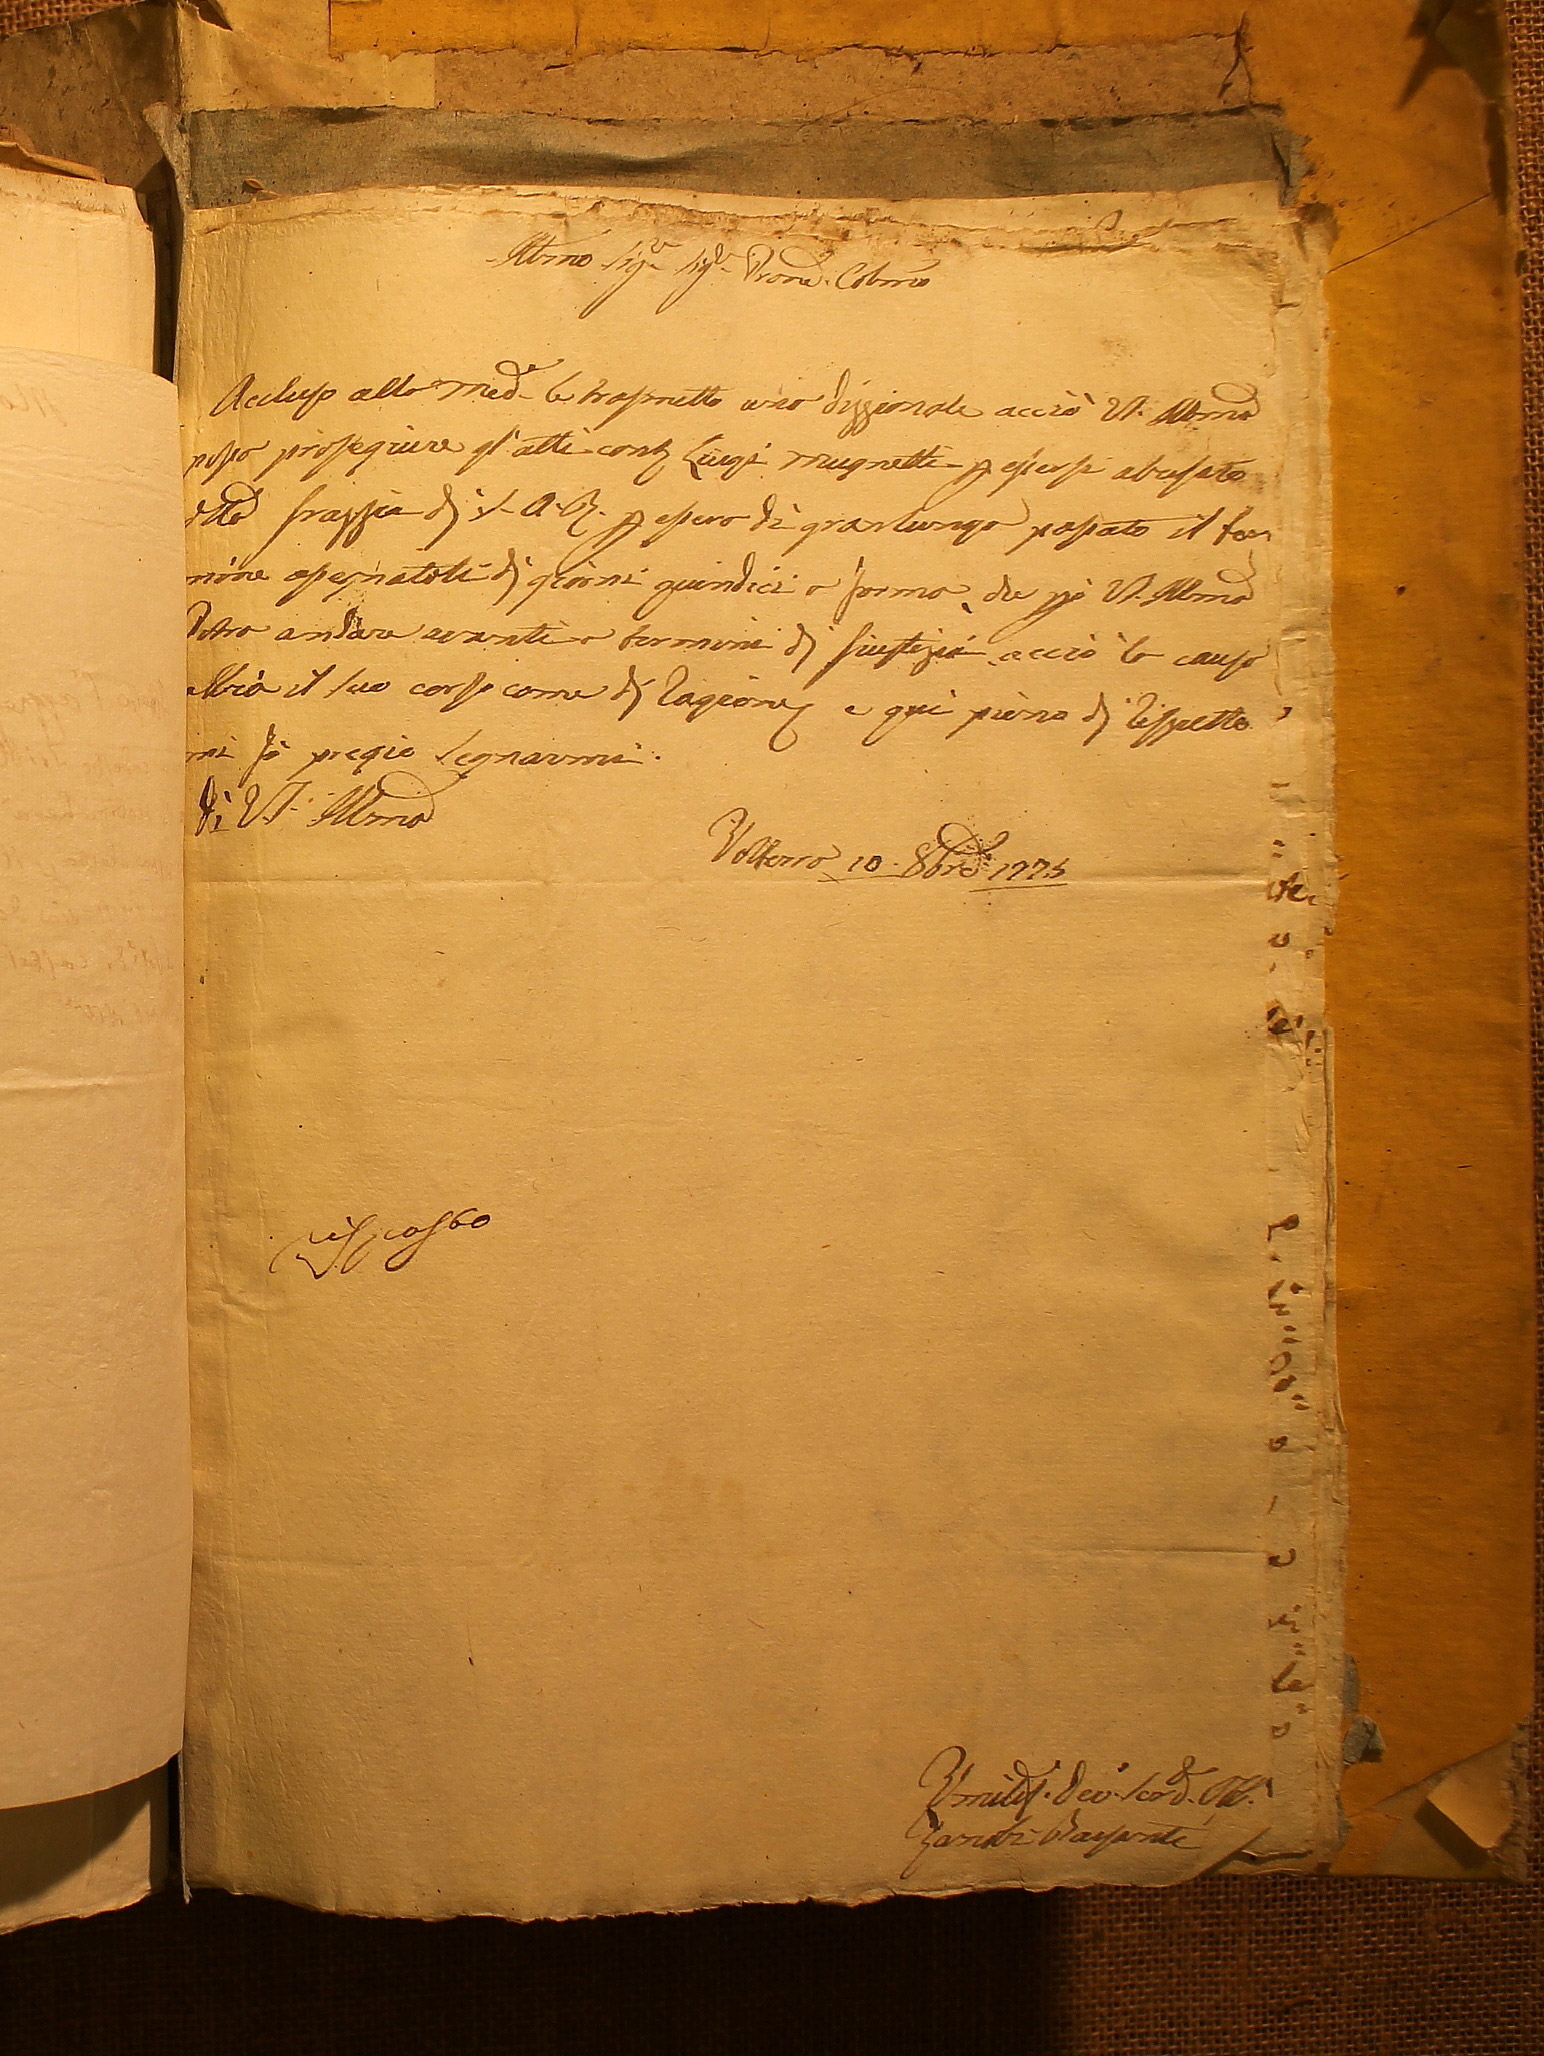 Illmo Sig.r Sig.r Prone Colmo
Acclusa alla med.a le trasmetto una disgionale acciò VS. Illma
possa proseguire gl'atti cont. Luigi Mugnetti p essersi abusato
d.tta grazzia di S. A. R. p essere di granlunga passato il ter
mine assegnatoli di giorni quindici a forma che più VS. Illma
Potrà andare avanti a termini di Giustizia acciò la causa
abbia il suo corso come di ragione e qui pieno di rispetto
mi fò pregio segnarmi.
Di VS. Illma
Volterra 10 8bre 1775
Umilis. Dev. Serv.
Zanobi